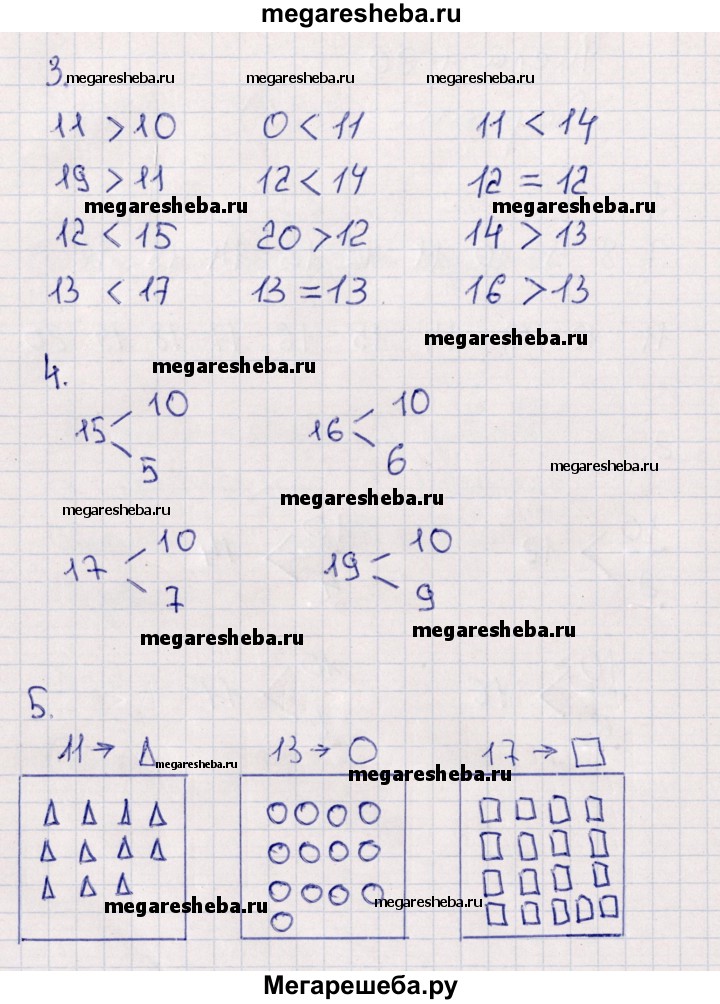 megaresheba.ru
3. megaresheba.ru megaresheba.ru megaresheba.ru
11 > 10 0 < 11 11 < 14
19 > 11 12 < 14 12 = 12
megaresheba.ru megaresheba.ru
12 < 15 20 > 12 14 > 13
13 < 17 13 = 13 16 > 13
megaresheba.ru
4. megaresheba.ru
10 10
15 16
5 6
megaresheba.ru
megaresheba.ru
megaresheba.ru
10 10
17 19
7 9
megaresheba.ru megaresheba.ru
5.
11 → Δ 13 → ○ 17 → □
megaresheba.ru
megaresheba.ru
megaresheba.ru megaresheba.ru
Мегарешеба.ру